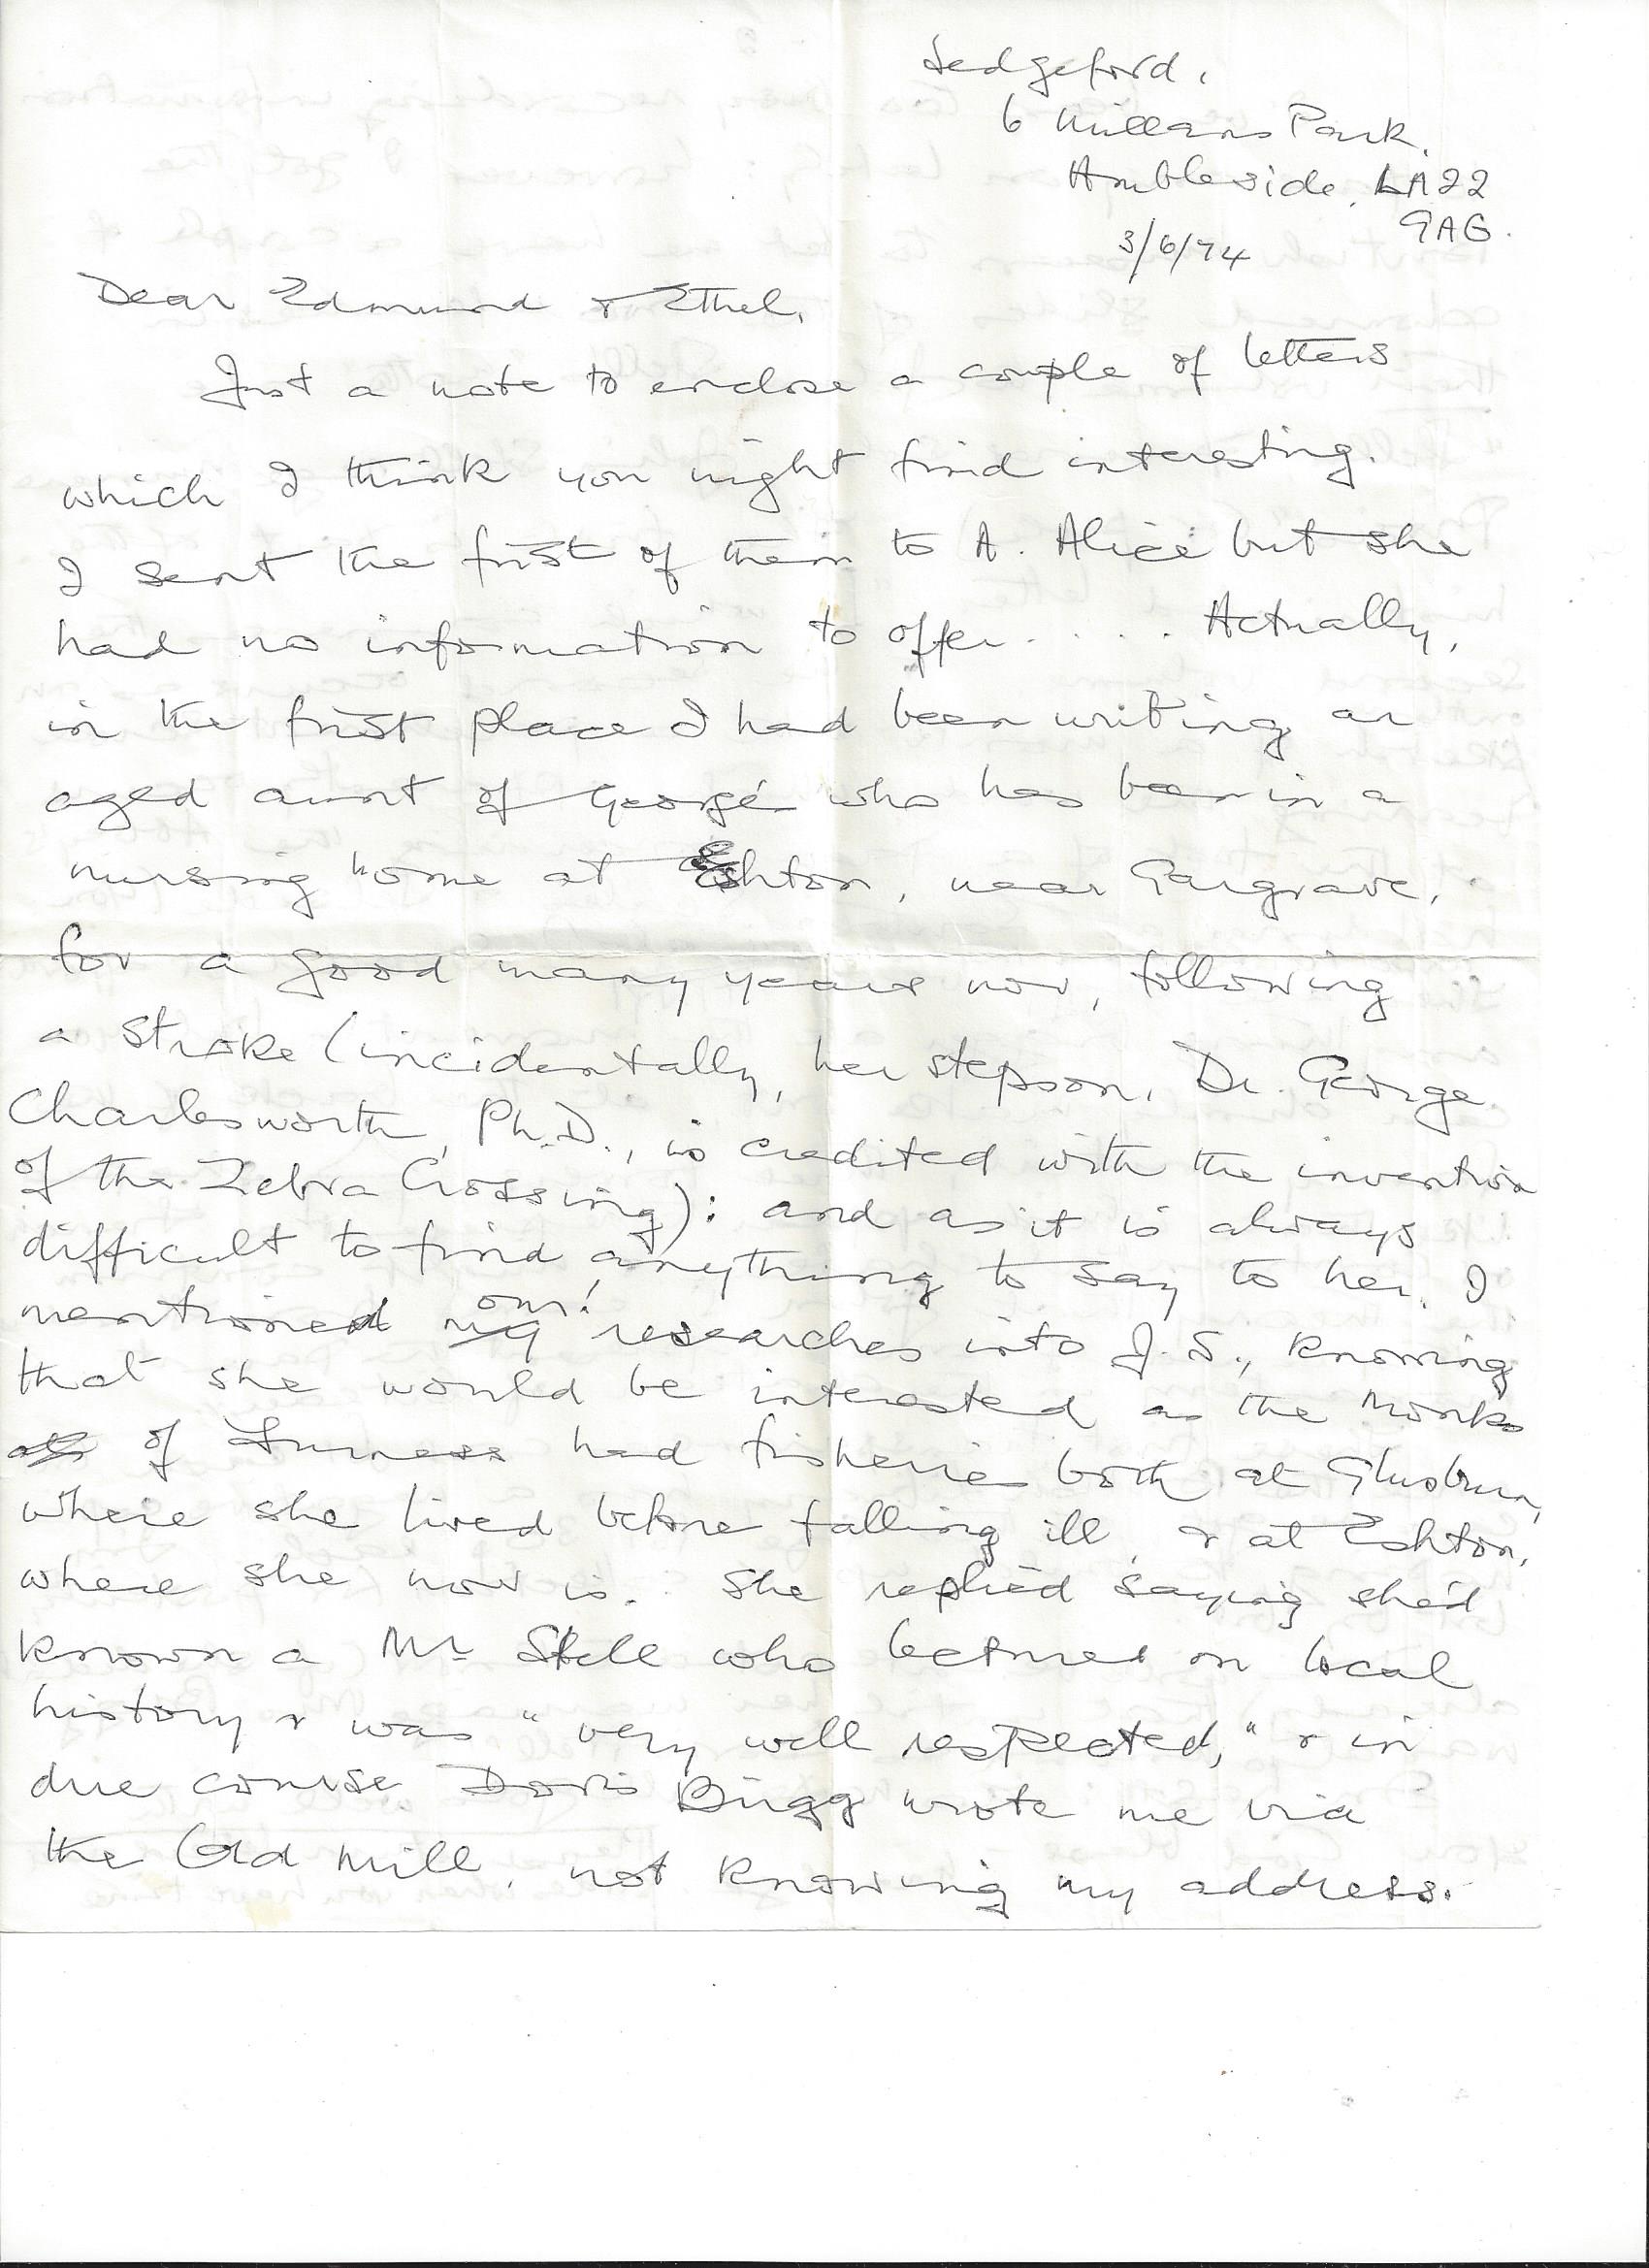 Sedgeford,
6 Millans Park,
Ambleside, LA22
9AG.
3/6/74
Dear Edmund & Ethel,
Just a note to enclose a couple of letters
which I think you might find interesting.
I sent the first of them to A. Alice but she
had no information to offer. . . . . Actually,
in the first place I had been writing an
aged aunt of George who has been in a
nursing home at Eshton, near Gargrave,
for a good many years now, following
a stroke (incidentally, her stepson, Dr. George
Charlesworth, Ph.D., is credited with the invention
of the Zebra Crossing): and as it is always
difficult to find anything to say to her, I
mentioned our! researches into J.S., knowing
that she would be interested as the Monks
of Furness had fisheries both at Glusburn,
where she lived before falling ill, & at Eshton,
where she now is. She replied saying she'd
known a Mr Stell who lectured on local
history & was "very well respected," & in
due course Doris Brigg wrote me via
the Old Mill, not knowing my address.